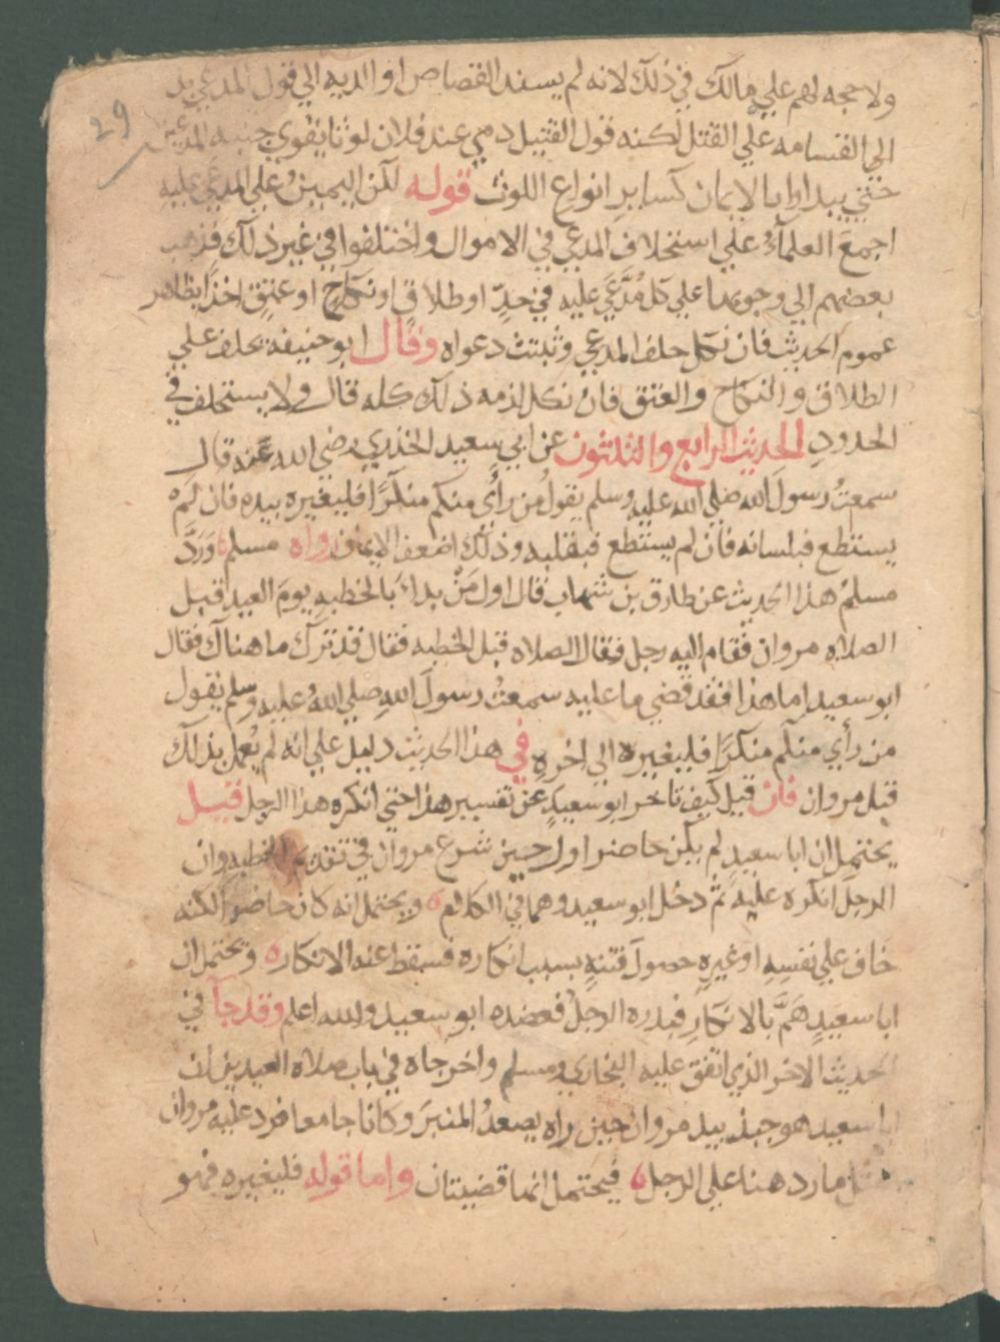 29
ولا حجه لهم علي مالك في ذلك لانه لم يسند القصاص او الديه الي قول المدعي بل
الي القسامه علي القتل لكنه قول القتيل دمي عند فلان لوثا يقوي جنبه المدعين
حتي يبداوا بالايمان كساير انواع اللوث قوله لكن اليمين علي المدعي عليه
اجمع العلمآء علي استحلاف المدعي في الاموال واختلفوا في غير ذلك فذهب
بعضهم الي وجوبها علي كل مدعي عليه في حد او طلاق او نكاح او عتق اخذا بظاهر
عموم الحديث فان نكل حلف المدعي وثبتت دعواه وقال ابو حنيفه يحلف علي
الطلاق والنكاح والعتق فان نكل لزمه ذلك كله قال ولا يستحلف في
الحدود الحديث الرابع والثلثون عن ابي سعيد الخدري رضي الله عنه قال
سمعت رسول الله صلي الله عليه وسلم يقول من رأي منكم منكرا فليغيره بيده فان لم
يستطع فبلسانه فان لم يستطع فبقلبه وذلك اضعف الايمان رواه مسلم ورد
مسلم هذا الحديث عن طارق بن شهاب قال اول من بداء بالخطبه يوم العيد قبل
الصلاه مروان فقام اليه رجل فقال الصلاه قبل الخطبه فقال قد ترك ما هنالك فقال
ابو سعيد اما هذا فقد قضي ما عليه سمعت رسول الله صلي الله عليه وسلم يقول
من رأي منكم منكرا فليغيره الي اخره ففي هذا الحديث دليل علي انه لم يعمل بذلك
قبل مروان فان قيل كيف تاخر ابو سعيد عن تفسير هذا حتي انكره هذا الرجل قيل
يحتمل ان ابا سعيد لم يكن حاضرا اول حين شرع مروان في تقديم الخطبه وان
الرجل انكره عليه ثم دخل ابو سعيد وهما في الكلام ويحتمل انه كان حاضرا لكنه
خاف علي نفسه او غيره حصول فتنه بسبب انكاره فسقط عنه الانكار ويحتمل ان
ابا سعيد هم بالانكار فبدره الرجل فعضده ابو سعيد والله اعلم وقد جآ في
الحديث الاخر الذي اتفق عليه البخاري ومسلم واخرجاه في باب صلاه العيدين ان
ابا سعيد هو جبذ بيد مروان حين راه يصعد المنبر وكانا جا معا فرد عليه مروان
مثل ما رد هنا علي الرجل فيحتمل انها قضيتان واما قوله فليغيره فهو